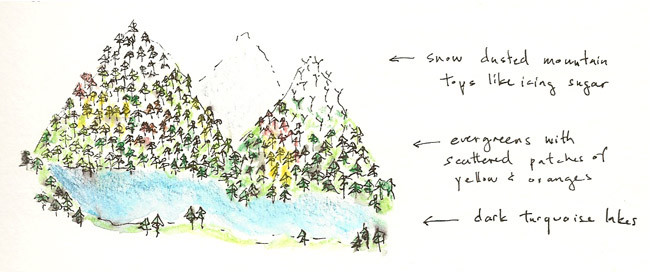 snow dusted mountain
tops like icing sugar
evergreens with
scattered patches of
yellow & oranges
dark turquoise lakes